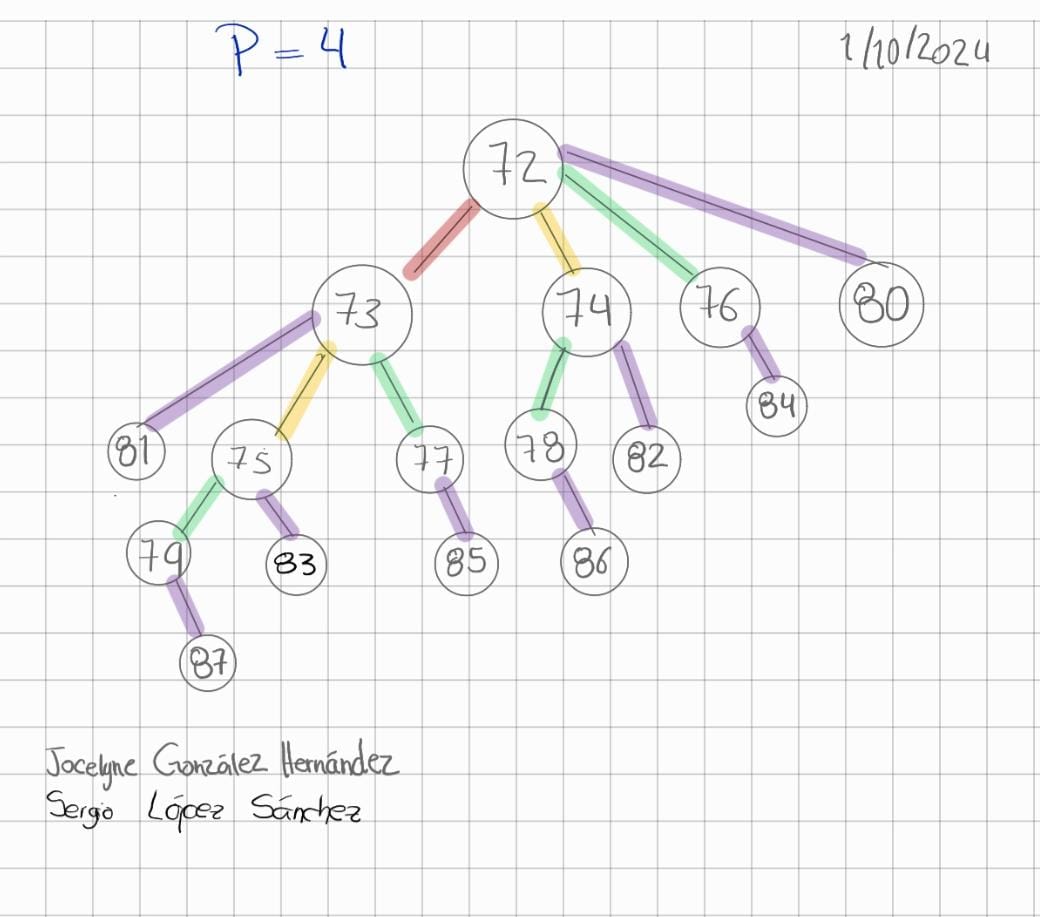 P = 4
1/10/2024
72
73
74
76
80
81
75
77
78
82
84
79
83
85
86
87
Jocelyne González Hernández
Sergio López Sánchez